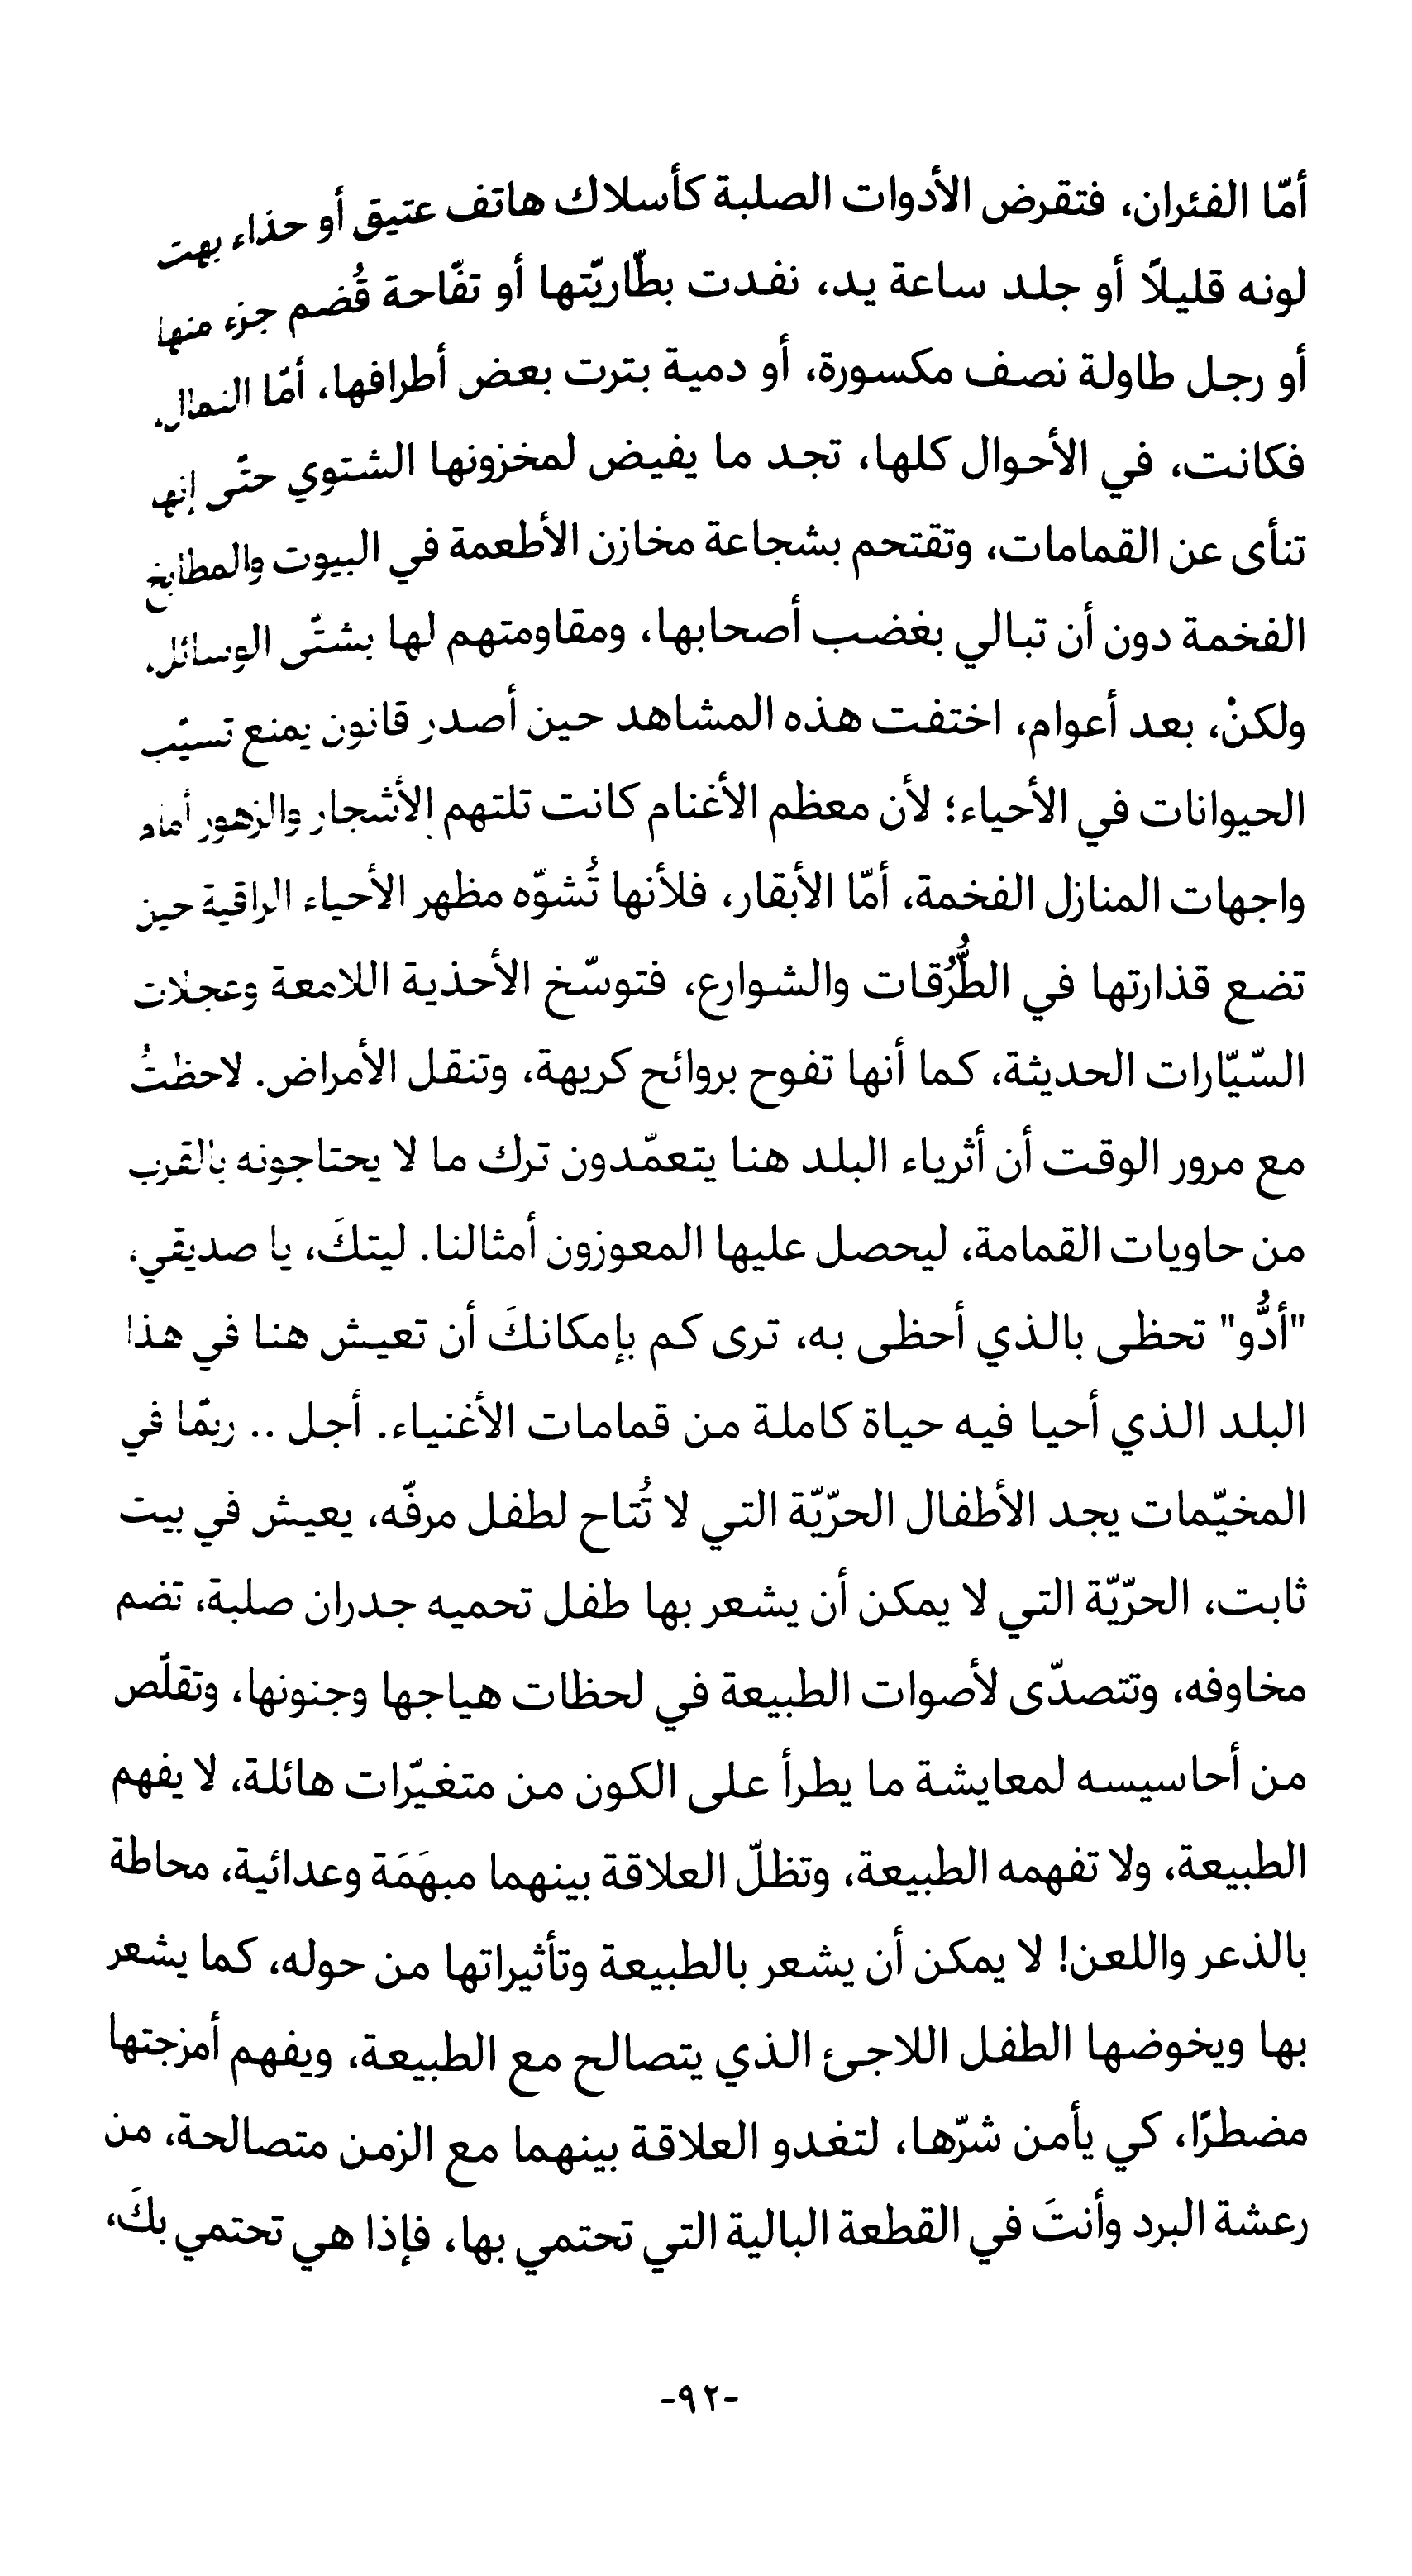 أمّا الفئران، فتقرض الأدوات الصلبة كأسلاك هاتف عتيق أو حذاء بهت
لونه قليلًا أو جلد ساعة يد، نفدت بطّاريّتها أو تفّاحة قُضم جزء منها
أو رجل طاولة نصف مكسورة، أو دمية بترت بعض أطرافها، أمّا النمال،
فكانت، في الأحوال كلها، تجد ما يفيض لمخزونها الشتوي حتّى إنها
تنأى عن القمامات، وتقتحم بشجاعة مخازن الأطعمة في البيوت والمطابخ
الفخمة دون أن تبالي بغضب أصحابها، ومقاومتهم لها بشتّى الوسائل،
ولكنْ، بعد أعوام، اختفت هذه المشاهد حين أصدر قانون يمنع تسيّب
الحيوانات في الأحياء؛ لأن معظم الأغنام كانت تلتهم الأشجار والزهور أمام
واجهات المنازل الفخمة، أمّا الأبقار، فلأنها تُشوّه مظهر الأحياء الراقية حين
تضع قذارتها في الطُّرُقات والشوارع، فتوسّخ الأحذية اللامعة وعجلات
السّيّارات الحديثة، كما أنها تفوح بروائح كريهة، وتنقل الأمراض. لاحظتُ
مع مرور الوقت أن أثرياء البلد هنا يتعمّدون ترك ما لا يحتاجونه بالقرب
من حاويات القمامة، ليحصل عليها المعوزون أمثالنا. ليتكَ، يا صديقي،
"أدُّو" تحظى بالذي أحظى به، ترى كم بإمكانكَ أن تعيش هنا في هذا
البلد الذي أحيا فيه حياة كاملة من قمامات الأغنياء. أجل .. ربمّا في
المخيّمات يجد الأطفال الحرّيّة التي لا تُتاح لطفل مرفّه، يعيش في بيت
ثابت، الحرّيّة التي لا يمكن أن يشعر بها طفل تحميه جدران صلبة، تضم
مخاوفه، وتتصدّى لأصوات الطبيعة في لحظات هياجها وجنونها، وتقلّص
من أحاسيسه لمعايشة ما يطرأ على الكون من متغيّرات هائلة، لا يفهم
الطبيعة، ولا تفهمه الطبيعة، وتظلّ العلاقة بينهما مبهَمَة وعدائية، محاطة
بالذعر واللعن! لا يمكن أن يشعر بالطبيعة وتأثيراتها من حوله، كما يشعر
بها ويخوضها الطفل اللاجئ الذي يتصالح مع الطبيعة، ويفهم أمزجتها
مضطرًا، كي يأمن شرّها، لتغدو العلاقة بينهما مع الزمن متصالحة، من
رعشة البرد وأنتَ في القطعة البالية التي تحتمي بها، فإذا هي تحتمي بكَ،
-٩٢-